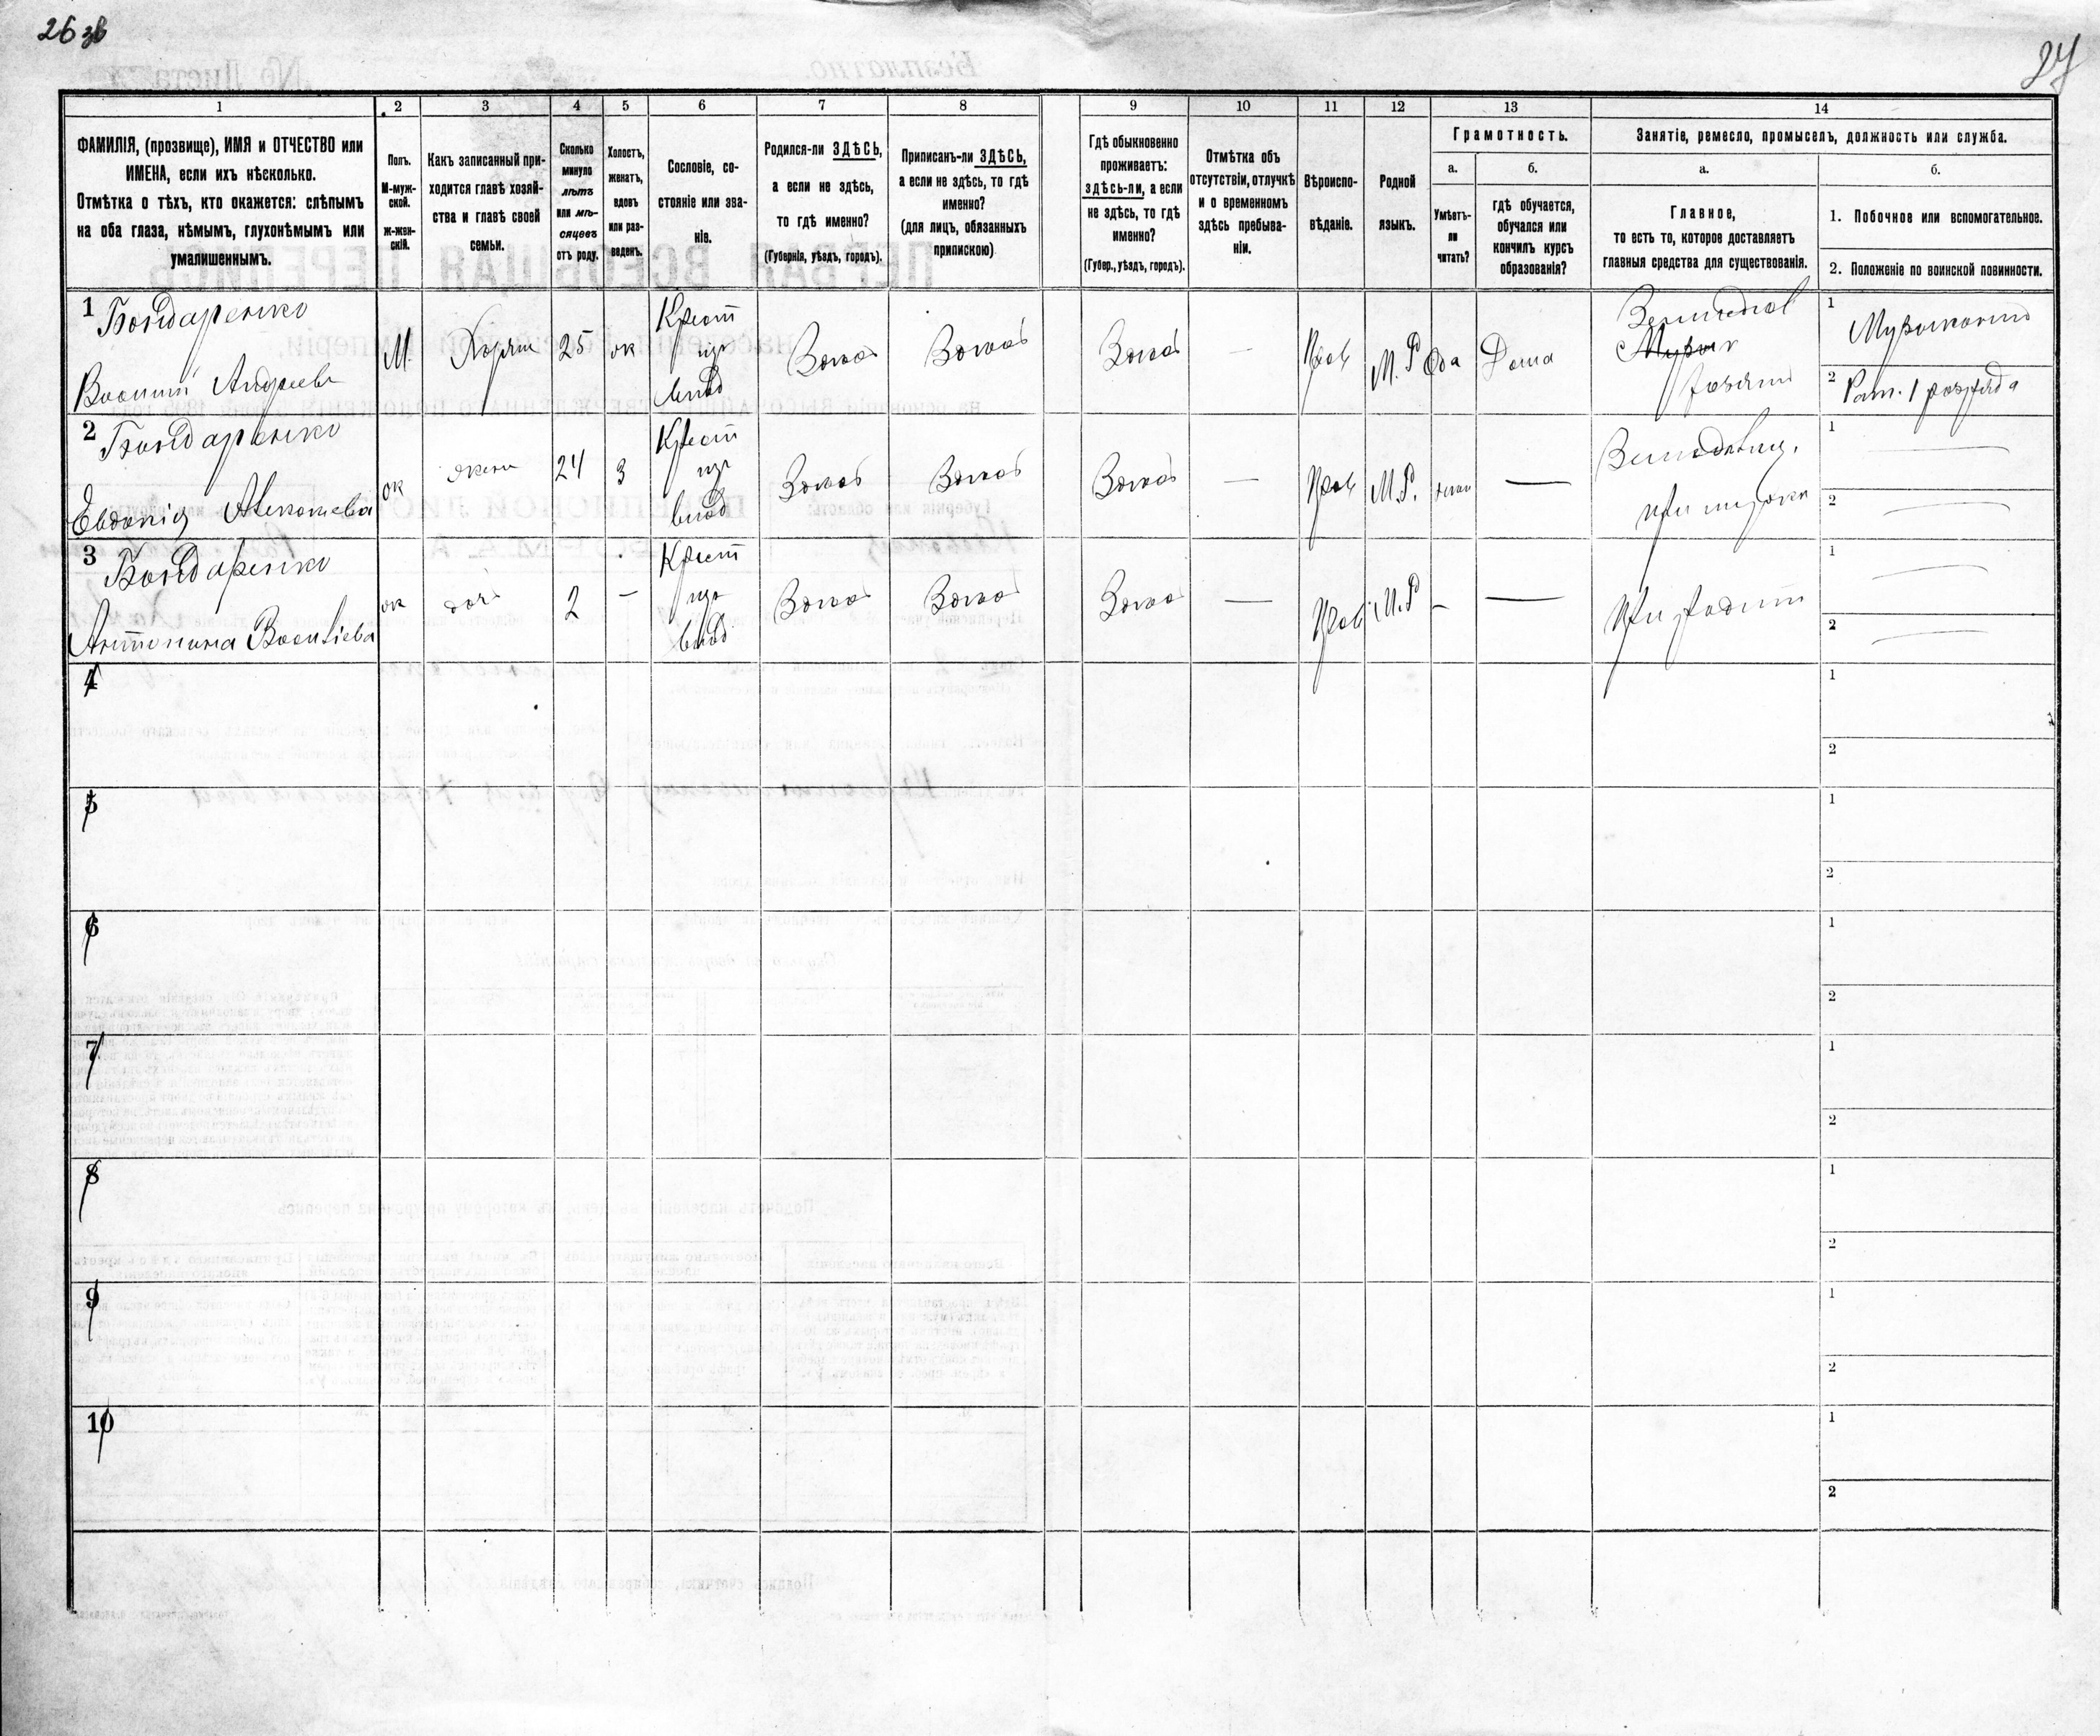 26 зв
27
1
2
3
4
5
6
7
8
9
10
11
12
13
14
ФАМИЛІЯ, (прозвище), ИМЯ и ОТЧЕСТВО или
ИМЕНА, если ихъ нѣсколько.
Отмѣтка о тѣхъ, кто окажется: слѣпымъ
на оба глаза, нѣмымъ, глухонѣмымъ или
умалишеннымъ.
Полъ.
М-муж-
ской.
Ж-жен-
скій.
Какъ записанный при-
ходится главѣ хозяй-
ства и главѣ своей
семьи.
Сколько
минуло
лѣтъ
или мѣ-
сяцевъ
отъ роду.
Холостъ,
женатъ,
вдовъ
или раз-
веденъ.
Сословіе, со-
стояніе или зва-
ніе.
Родился-ли ЗДѢСЬ,
а если не здѣсь,
то гдѣ именно?
(Губернія, уѣздъ, городъ).
Приписанъ-ли ЗДѢСЬ,
а если не здѣсь, то гдѣ
именно?
(для лицъ, обязанныхъ
припискою)
Гдѣ обыкновенно
проживаетъ:
здѣсь-ли, а если
не здѣсь, то гдѣ
именно?
(Губер., уѣздъ, городъ).
Отмѣтка объ
отсутствіи, отлучкѣ
и о временномъ
здѣсь пребыва-
ніи.
Вѣроиспо-
вѣданіе.
Родной
языкъ.
Грамотность.
а.
Умѣетъ-
ли
читать?
б.
гдѣ обучается,
обучался или
кончилъ курсъ
образованія?
Занятіе, ремесло, промыселъ, должность или служба.
а.
Главное,
то есть то, которое доставляетъ
главныя средства для существованія.
б.
1. Побочное или вспомогательное.
2. Положеніе по воинской повинности.
1 Бондаренко
Василій Андреевъ
М.
Хозяин
25
ж
Крест
из
влад
Здѣсь
Здѣсь
Здѣсь
—
Прав
М. Р
Да
Дома
хозяин
1 Музыкант
2 Рат. 1 разряда
2 Бондаренко
Евдокія
ж
жена
24
З
Крест
из
влад
Здѣсь
Здѣсь
Здѣсь
—
Прав
М. Р.
—
при мужѣ
1 —
2 —
3 Бондаренко
Антонина Васильева
ж
дочь
2
—
Крест
из
влад
Здѣсь
Здѣсь
Здѣсь
—
Прав
М. Р
—
—
1 —
2 —
4
1
2
5
1
2
6
1
2
7
1
2
8
1
2
9
1
2
10
1
2